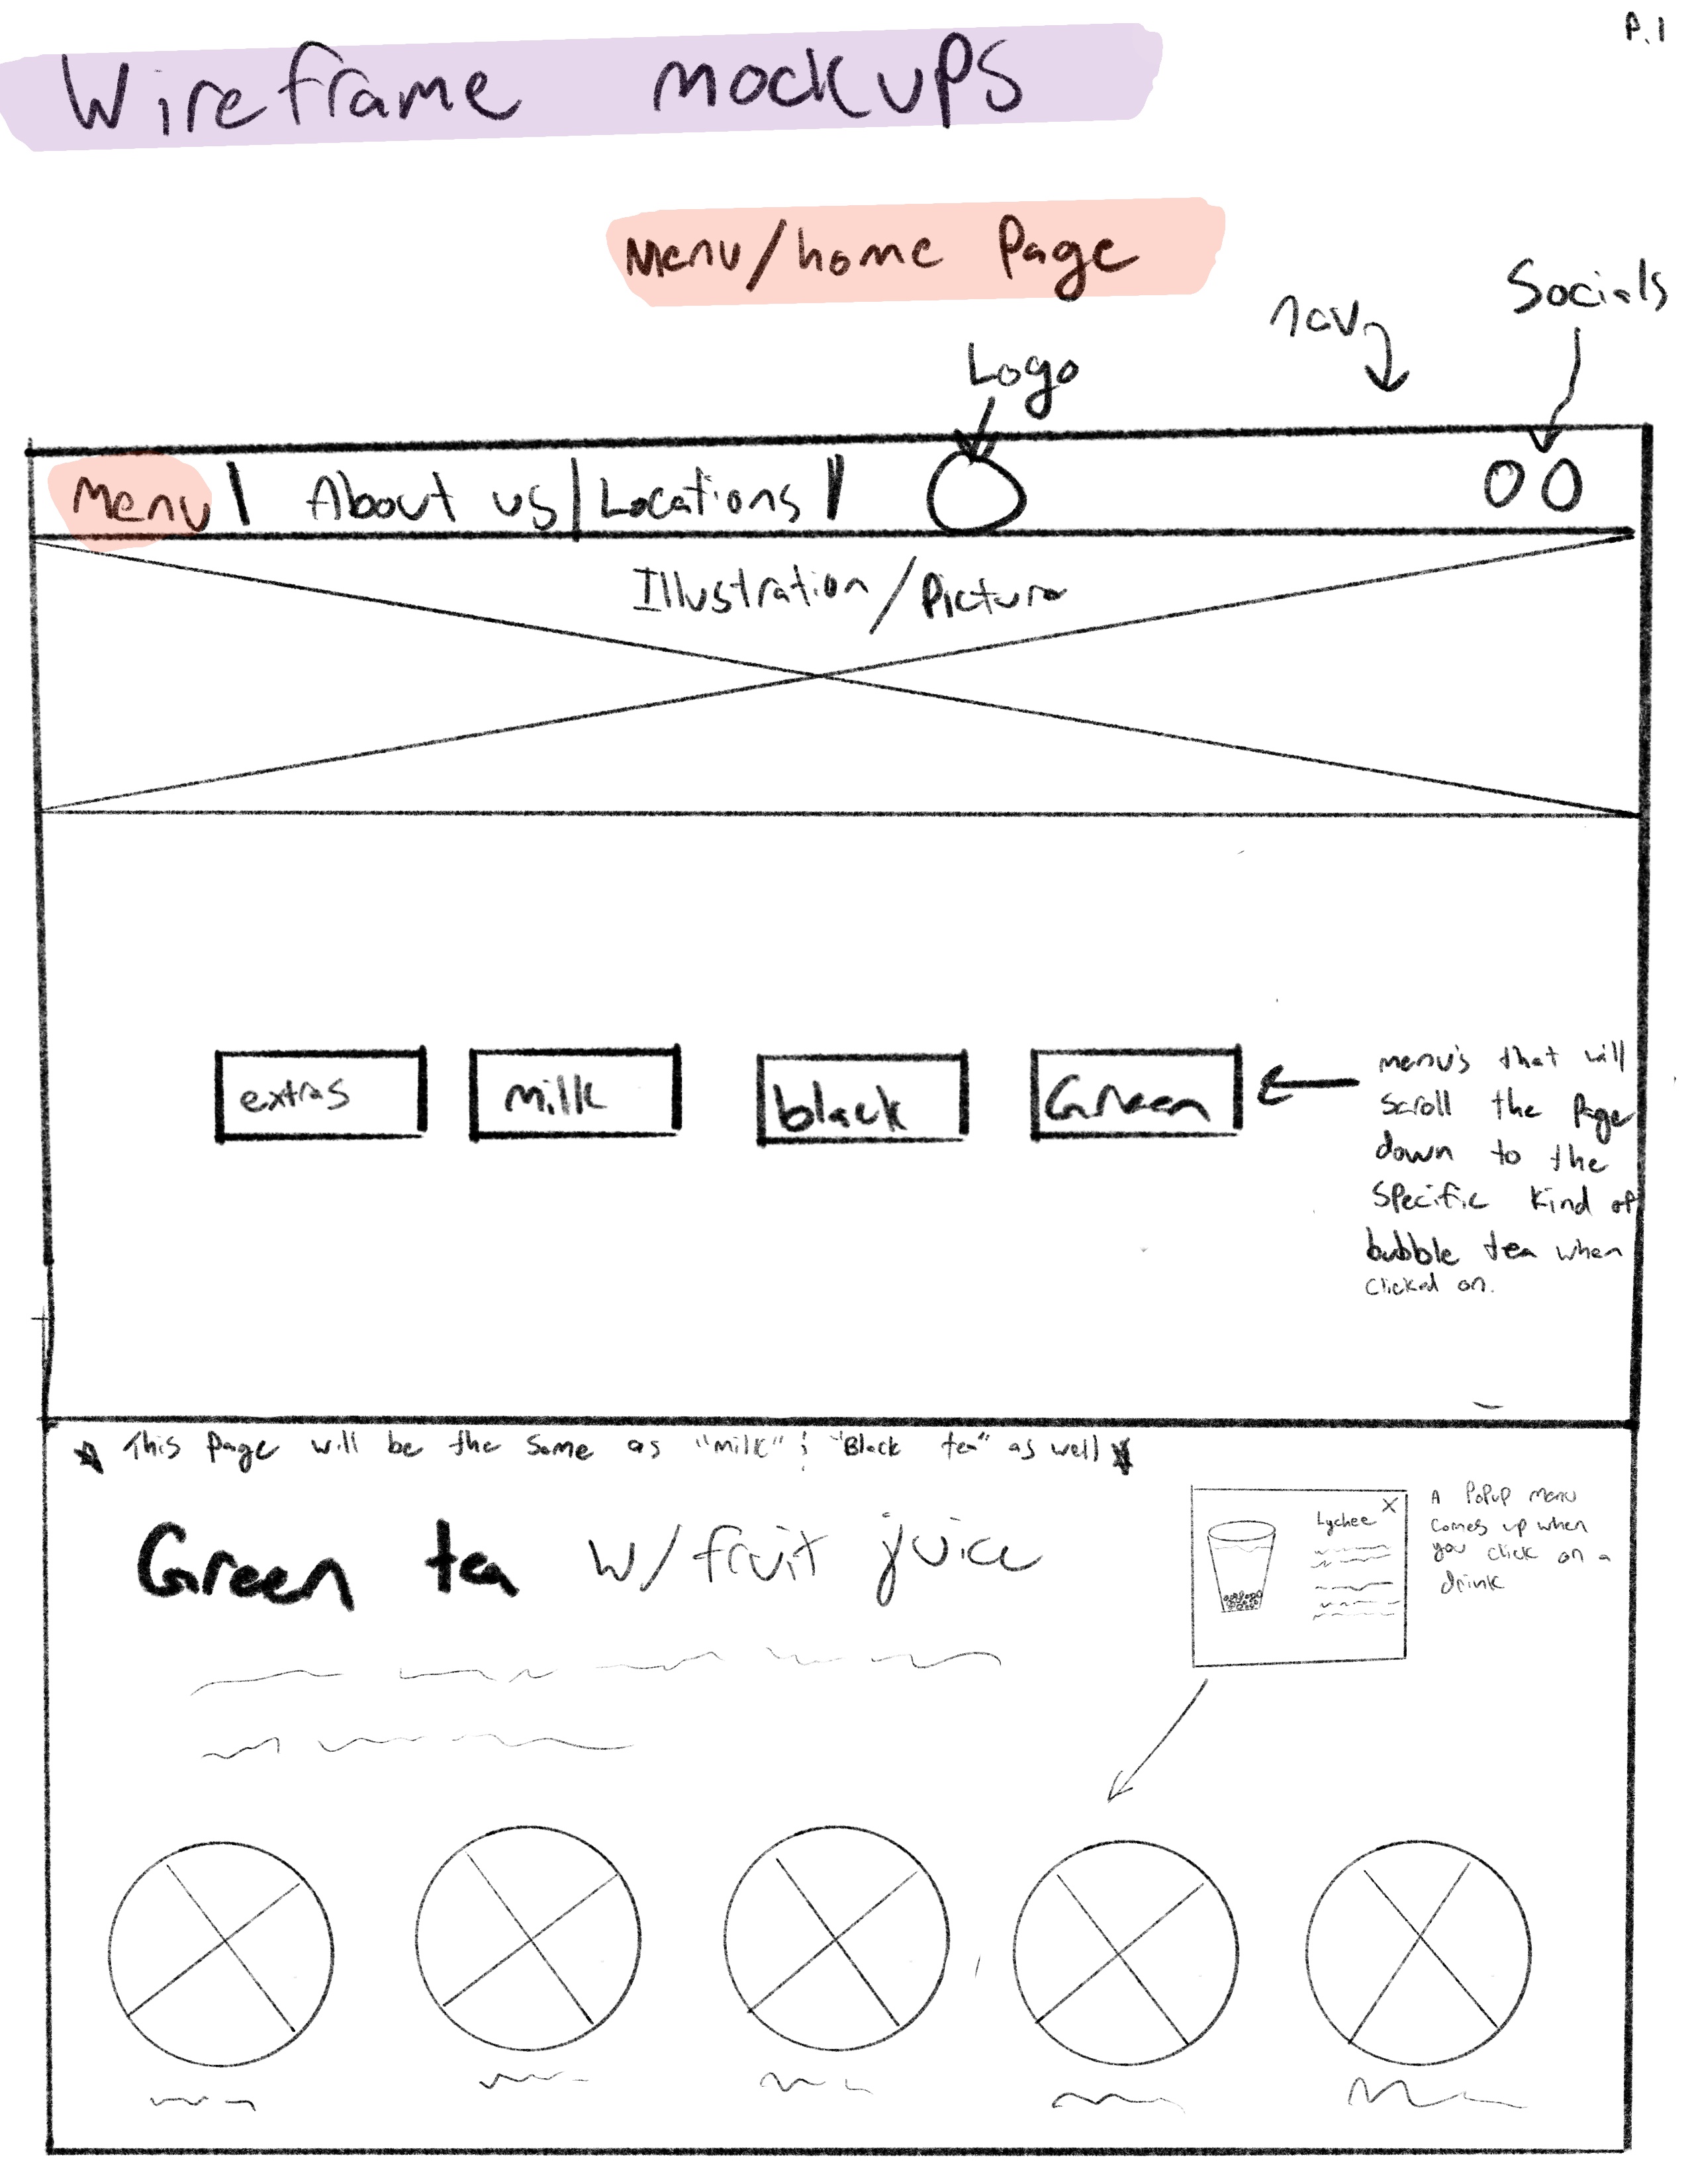 P.1
Wireframe mockups
Menu/home Page
Socials
nav
Logo
Menu | About us | Locations |
Illustration/Picture
extras
milk
black
Green
menu's that will
scroll the Page
down to the
Specific kind of
bubble tea when
clicked on.
This Page will be the same as "milk" & "Black tea" as well
Green tea w/ fruit juice
X
Lychee
A PoPup menu
comes up when
you click on a
drink